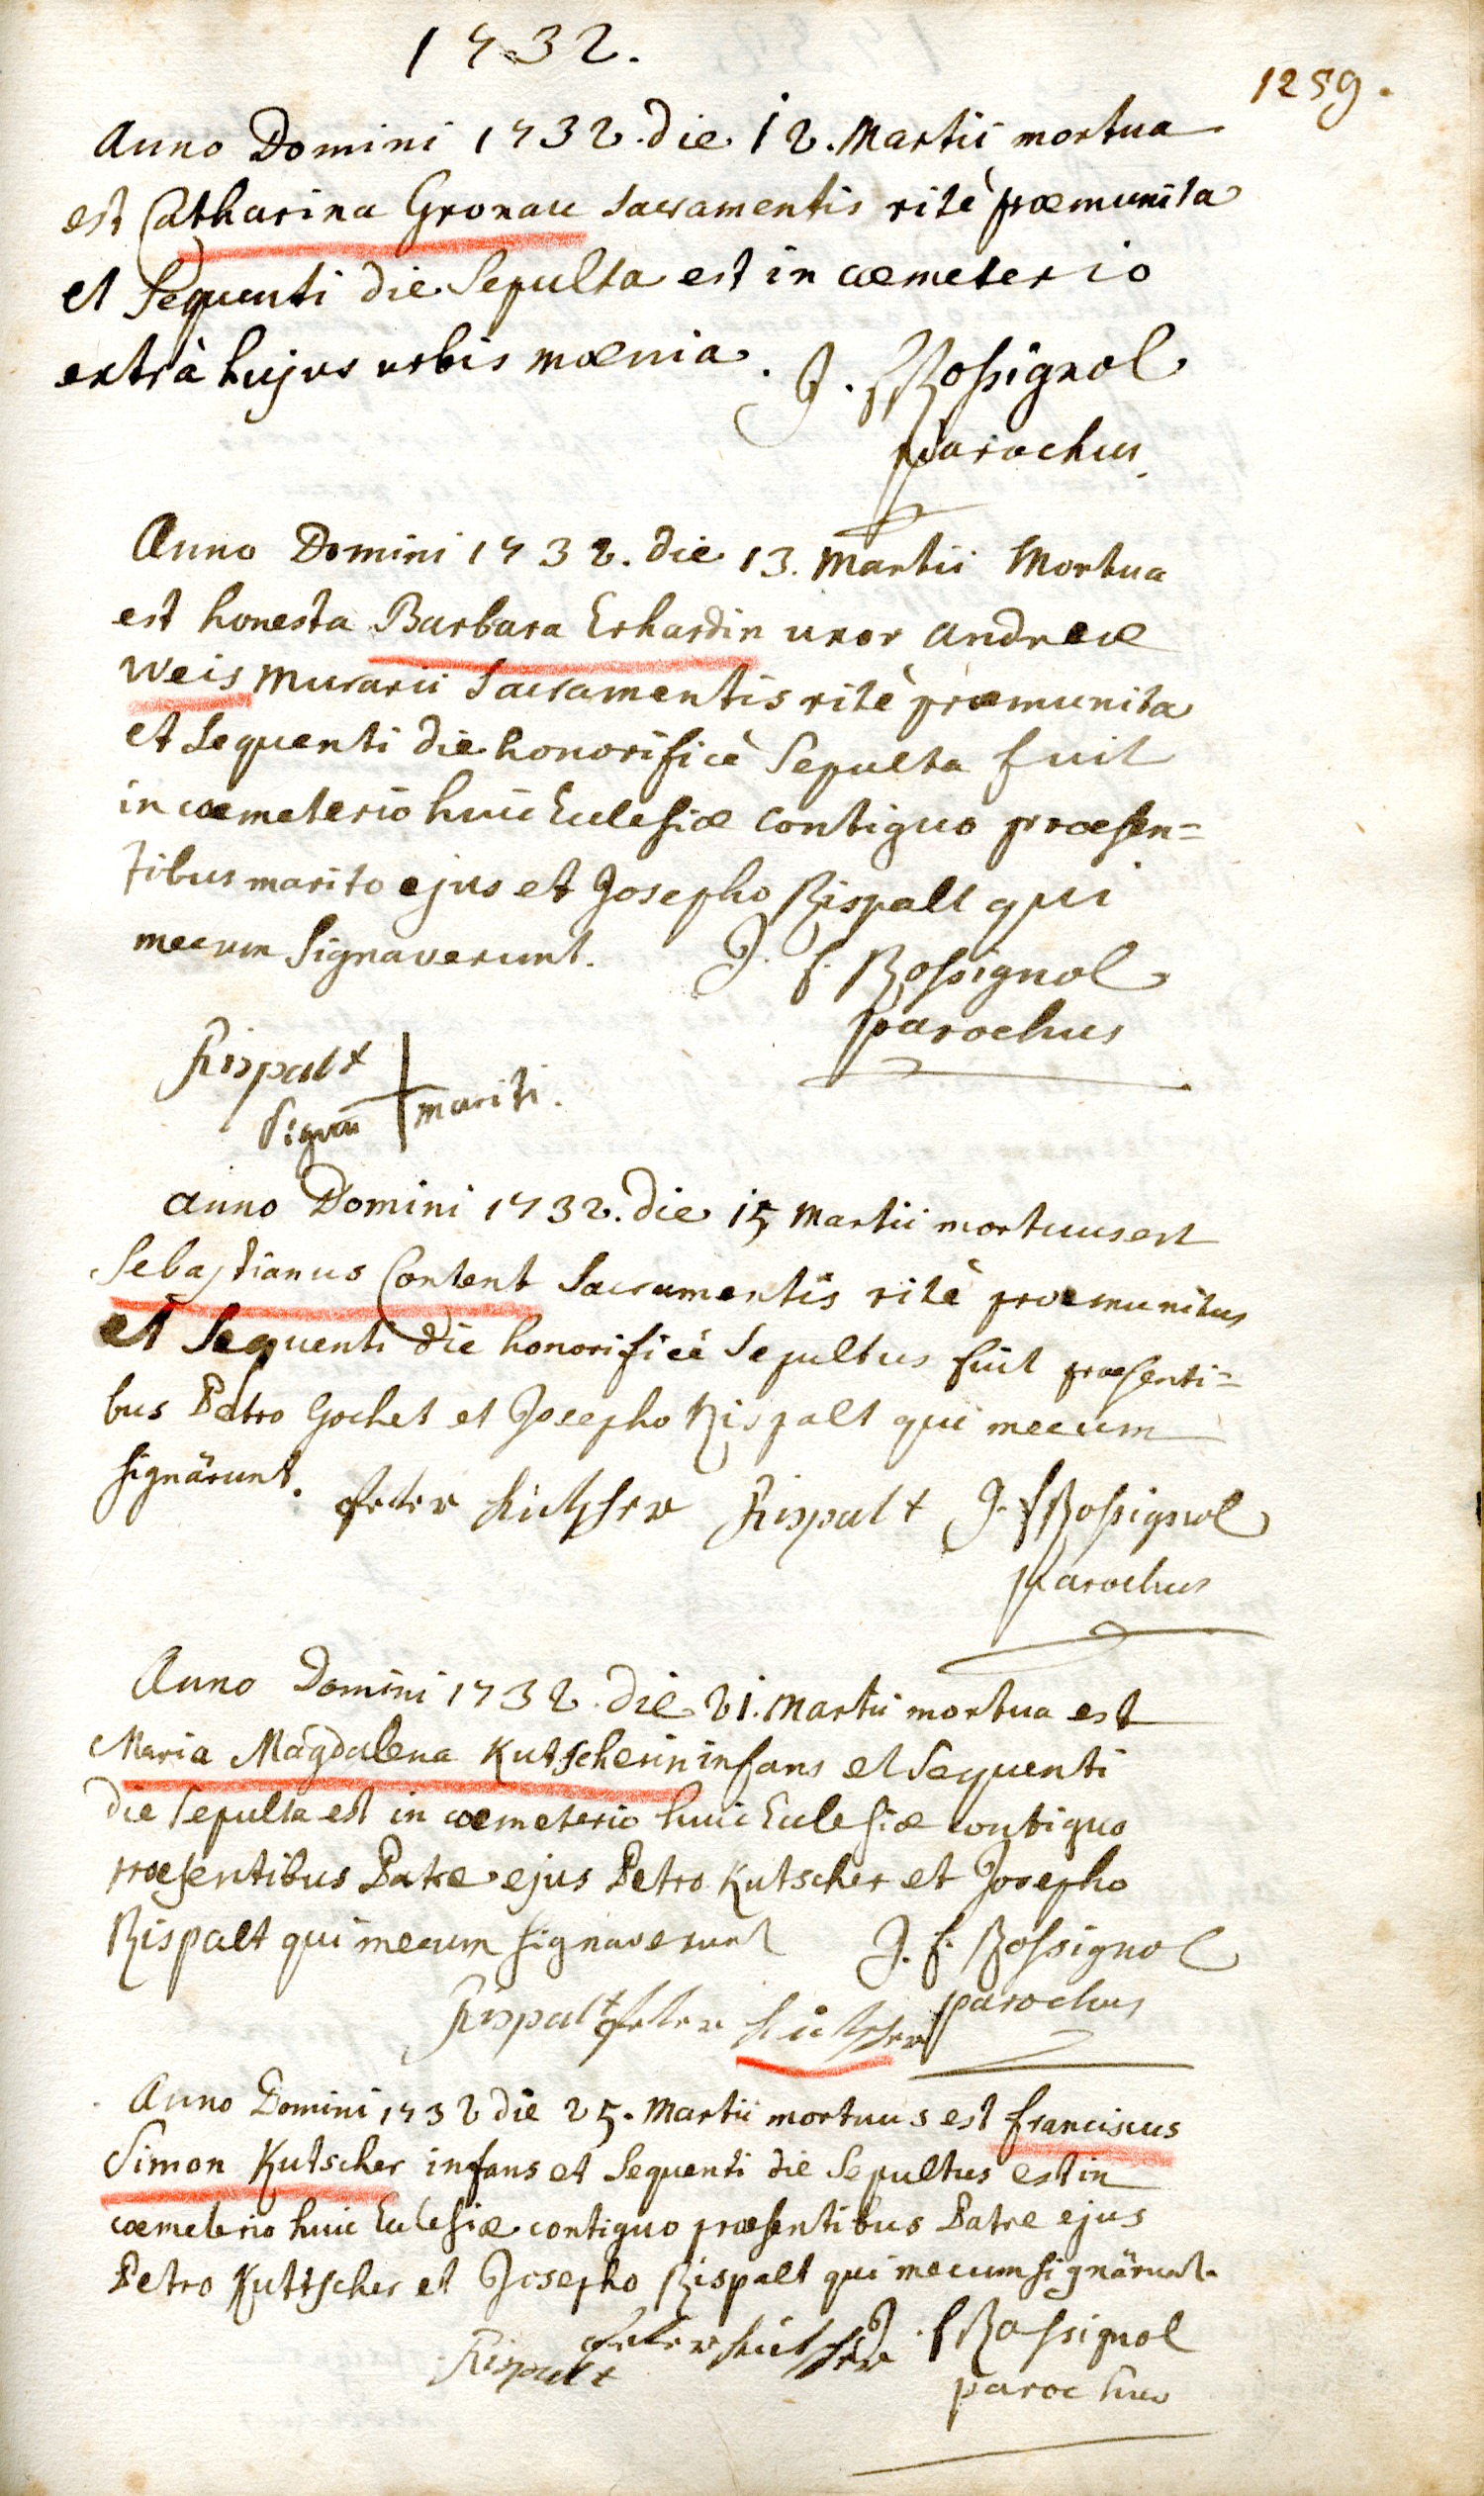 1732.
1259.
Anno Domini 1732. die 12. Martii mortua
est Catharina Gronau sacramentis ritè præmunita
et sequenti die sepulta est in cœmeterio
extrà hujus urbis mœnia. J. f Rossignol
parochus.
Anno Domini 1732. die 13. Martii Mortua
est honesta Barbara Erhardin uxor Andreæ
Weis Murarii Sacramentis ritè præmunita
et sequenti die honorificè Sepulta fuit
in cœmeterio huic Ecclesiæ contiguo præsen=
tibus marito ejus et Josepho Rispalt qui
mecum signaverunt. J. f. Rossignol
parochus
Rispalt
signum + mariti.
Anno Domini 1732. die 15 Martii mortuus est
Sebastianus Content Sacramentis ritè præmunitus
et sequenti die honorificè Sepultus fuit præsenti=
bus Petro Gochet et Josepho Rispalt qui mecum
signârunt. Peter Kutscher Rispalt J. f Rossignol
parochus
Anno Domini 1732. die 21. Martii mortua est
Maria Magdalena Kutscherin infans et Sequenti
die sepulta est in cœmeterio huic Ecclesiæ contiguo
præsentibus Patre ejus Petro Kutscher et Josepho
Rispalt qui mecum signaverunt J. f. Rossignol
Rispalt Peter Kutscher parochus
Anno Domini 1732 die 25. Martii mortuus est franciscus
Simon Kutscher infans et Sequenti die Sepultus est in
cœmeterio huic Ecclesiæ contiguo præsentibus Patre ejus
Petro Kuttscher et Josepho Rispalt qui mecum signârunt.
Rispalt Peter Kutscher J. f Rossignol
parochus